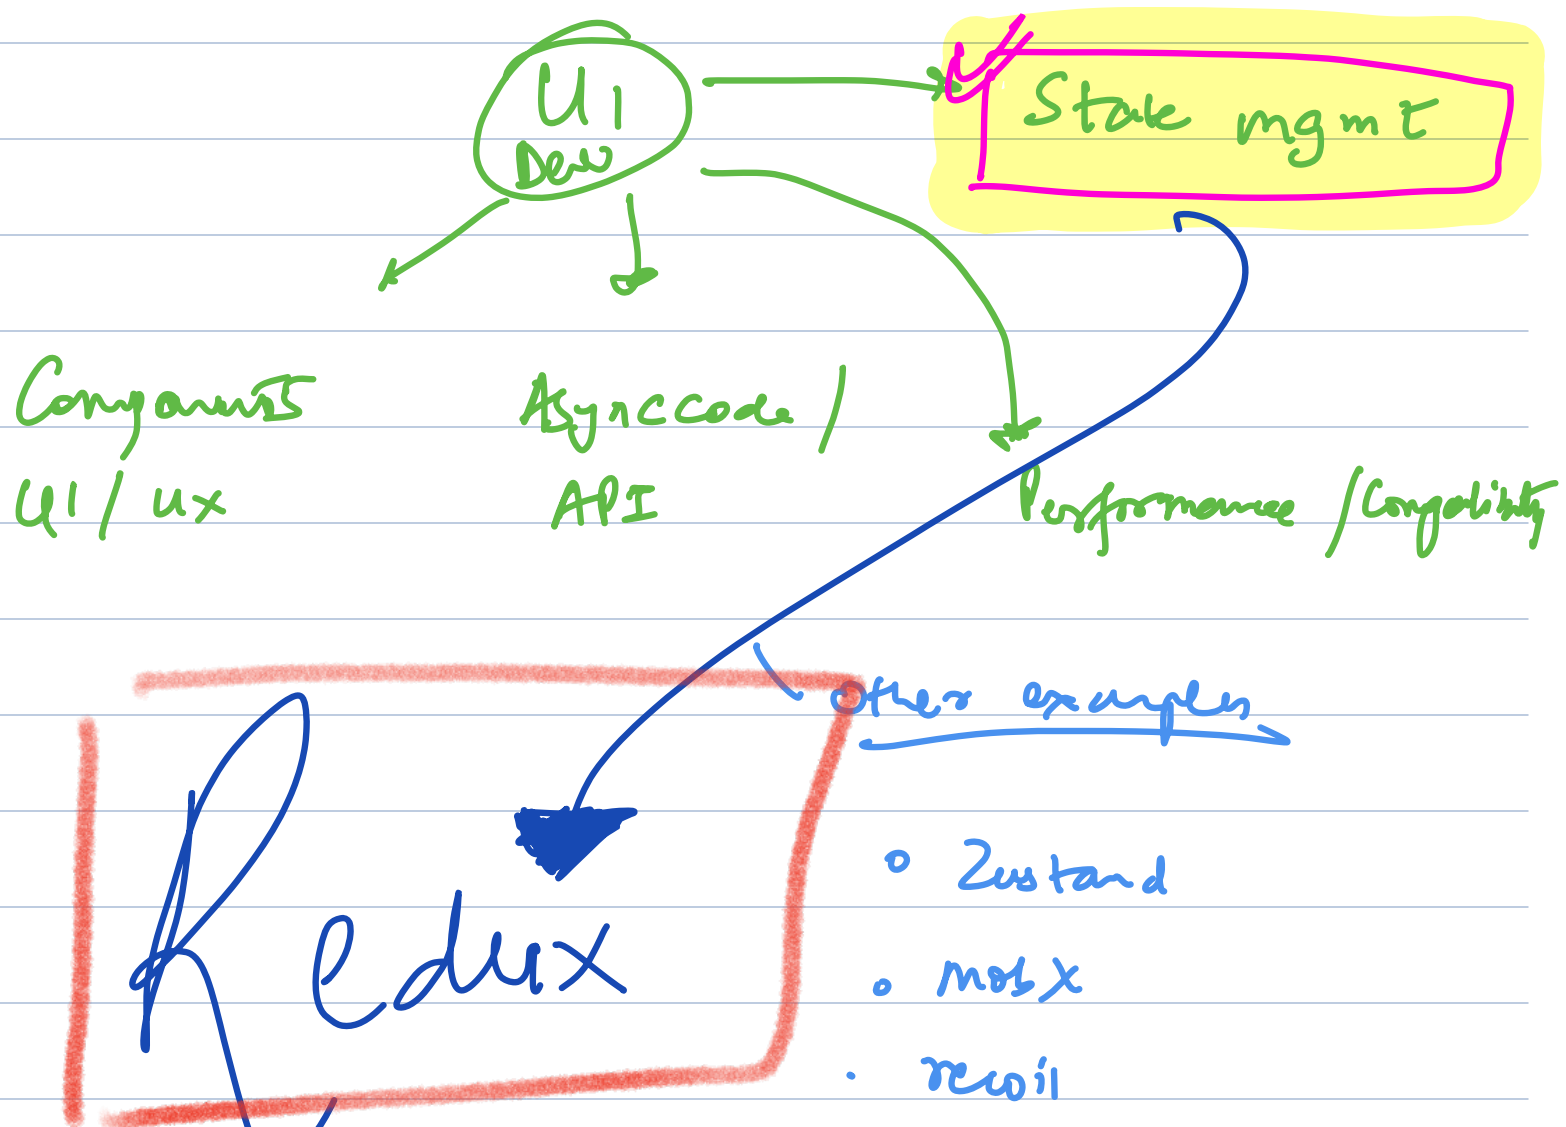 UI
Dev
State mgmt
Components
UI / UX
Async code /
API
Performance / Compatibility
Other examples
Redux
Zustand
mobX
recoil